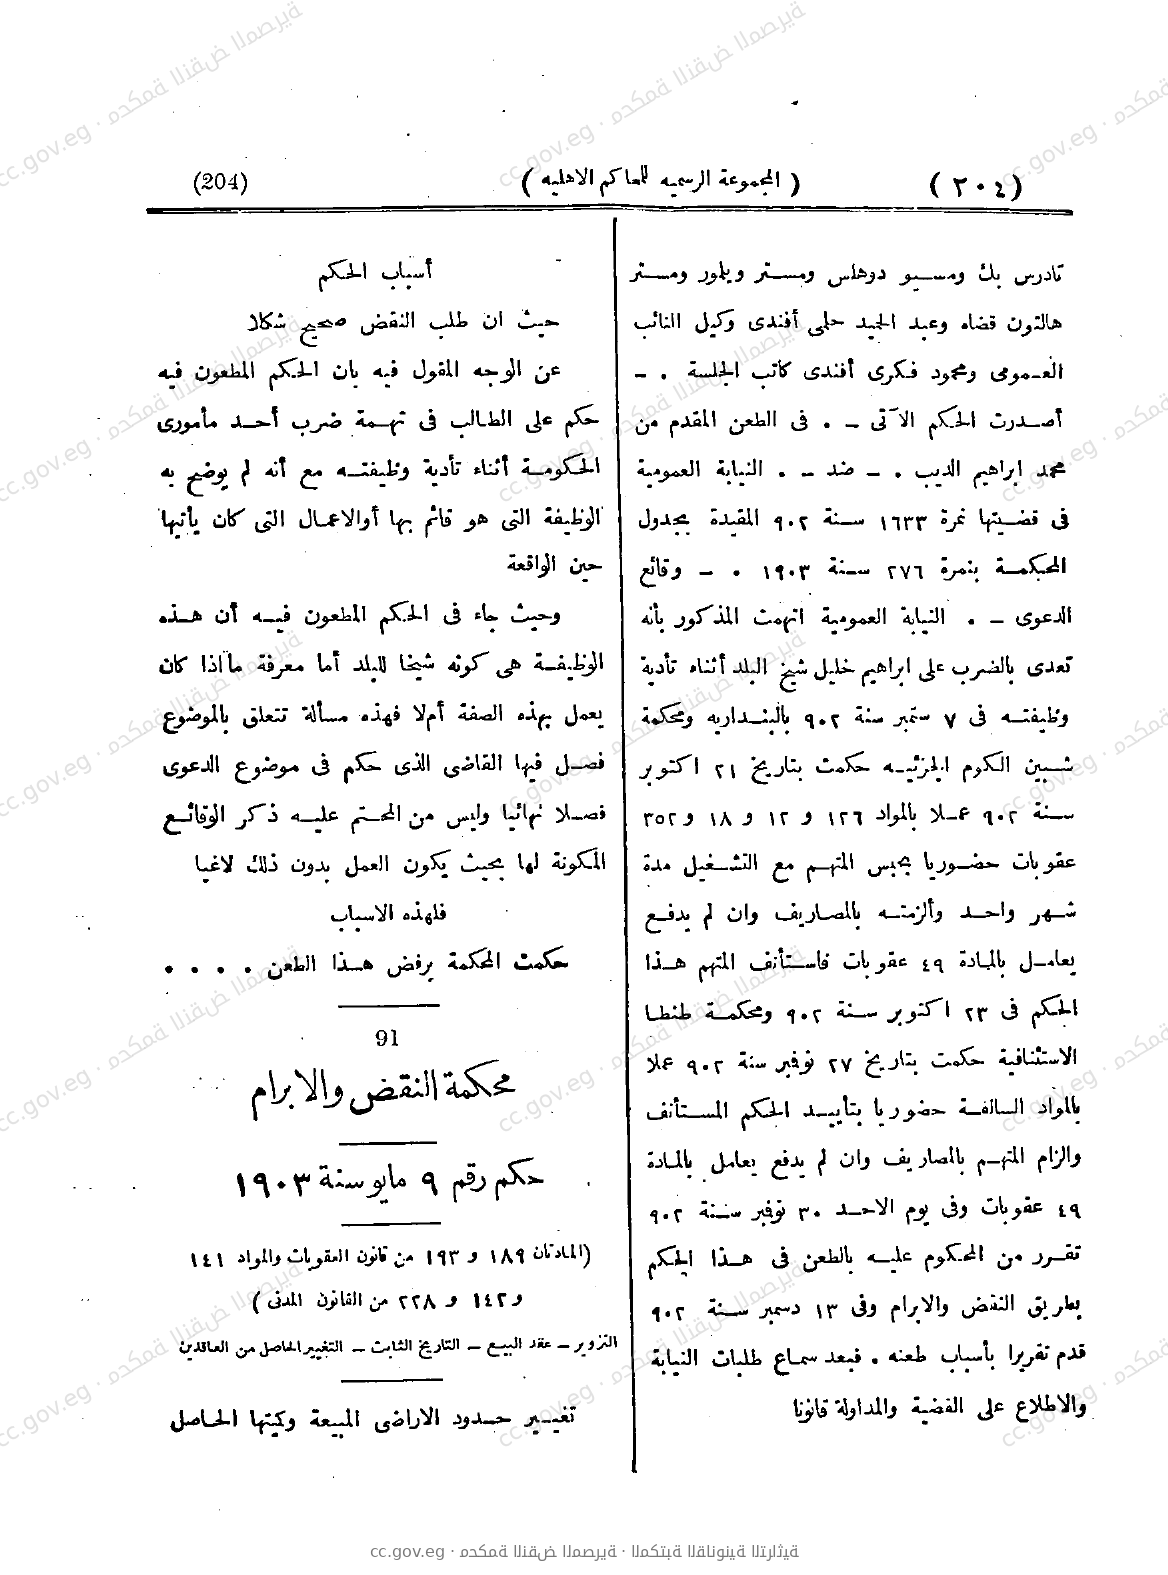 (٢٠٤)
( المجموعة الرسميه للمحاكم الاهليه )
(204)
تادرس بك ومسيو دوهلس ومستر ويلمور ومستر
هالتون قضاه وعبد المجيد حلمى أفندى وكيل النائب
العمومى ومحمود فكرى أفندى كاتب الجلسة . –
أصدرت الحكم الآتى – . فى الطعن المقدم من
محمد ابراهيم الديب . – ضد – . النيابة العمومية
فى قضيتها نمرة ١٦٣٣ سنة ٩٠٢ المقيدة بجدول
المحكمة بنمرة ٢٧٦ سنة ١٩٠٣ . – وقائع
الدعوى – . النيابة العمومية اتهمت المذكور بأنه
تعدى بالضرب على ابراهيم خليل شيخ البلد أثناء تأدية
وظيفته فى ٧ ستمبر سنة ٩٠٢ بالبنداريه ومحكمة
شبين الكوم الجزئيه حكمت بتاريخ ٢١ اكتوبر
سنة ٩٠٢ عملا بالمواد ١٢٦ و ١٢ و ١٨ و ٣٥٢
عقوبات حضوريا بحبس المتهم مع التشغيل مدة
شهر واحد وألزمته بالمصاريف وان لم يدفع
يعامل بالمادة ٤٩ عقوبات فاستأنف المتهم هذا
الحكم فى ٢٣ اكتوبر سنة ٩٠٢ ومحكمة طنطا
الاستئنافية حكمت بتاريخ ٢٧ نوفمبر سنة ٩٠٢ عملا
بالمواد السالفة حضوريا بتأييد الحكم المستأنف
والزام المتهم بالمصاريف وان لم يدفع يعامل بالمادة
٤٩ عقوبات وفى يوم الاحد ٣٠ نوفمبر سنة ٩٠٢
تقرر من المحكوم عليه بالطعن فى هذا الحكم
بطريق النقض والابرام وفى ١٣ دسمبر سنة ٩٠٢
قدم تقريرا بأسباب طعنه . فبعد سماع طلبات النيابة
والاطلاع على القضية والمداولة قانونا
أسباب الحكم
حيث ان طلب النقض صحيح شكلا
عن الوجه المقول فيه بان الحكم المطعون فيه
حكم على الطالب فى تهمة ضرب أحد مأمورى
الحكومة أثناء تأدية وظيفته مع أنه لم يوضح به
الوظيفة التى هو قائم بها أوالاعمال التى كان يأتيها
حين الواقعة
وحيث جاء فى الحكم المطعون فيه أن هذه
الوظيفة هى كونه شيخا للبلد أما معرفة مااذا كان
يعمل بهذه الصفة أم لا فهذه مسألة تتعلق بالموضوع
فصل فيها القاضى الذى حكم فى موضوع الدعوى
فصلا نهائيا وليس من المحتم عليه ذكر الوقائع
المكونة لها بحيث يكون العمل بدون ذلك لاغيا
فلهذه الاسباب
حكمت المحكمة برفض هذا الطعن . . . .
91
محكمة النقض والابرام
حكم رقم ٩ مايو سنة ١٩٠٣
(المادتان ١٨٩ و ١٩٣ من قانون العقوبات والمواد ١٤١
و ١٤٢ و ٢٢٨ من القانون المدنى )
التزوير – عقد البيع – التاريخ الثابت – التغيير الحاصل من العاقدين
تغيير حدود الاراضى المبيعة وكميتها الحاصل
cc.gov.eg · محكمة النقض المصرية · المكتبة القانونية التراثية